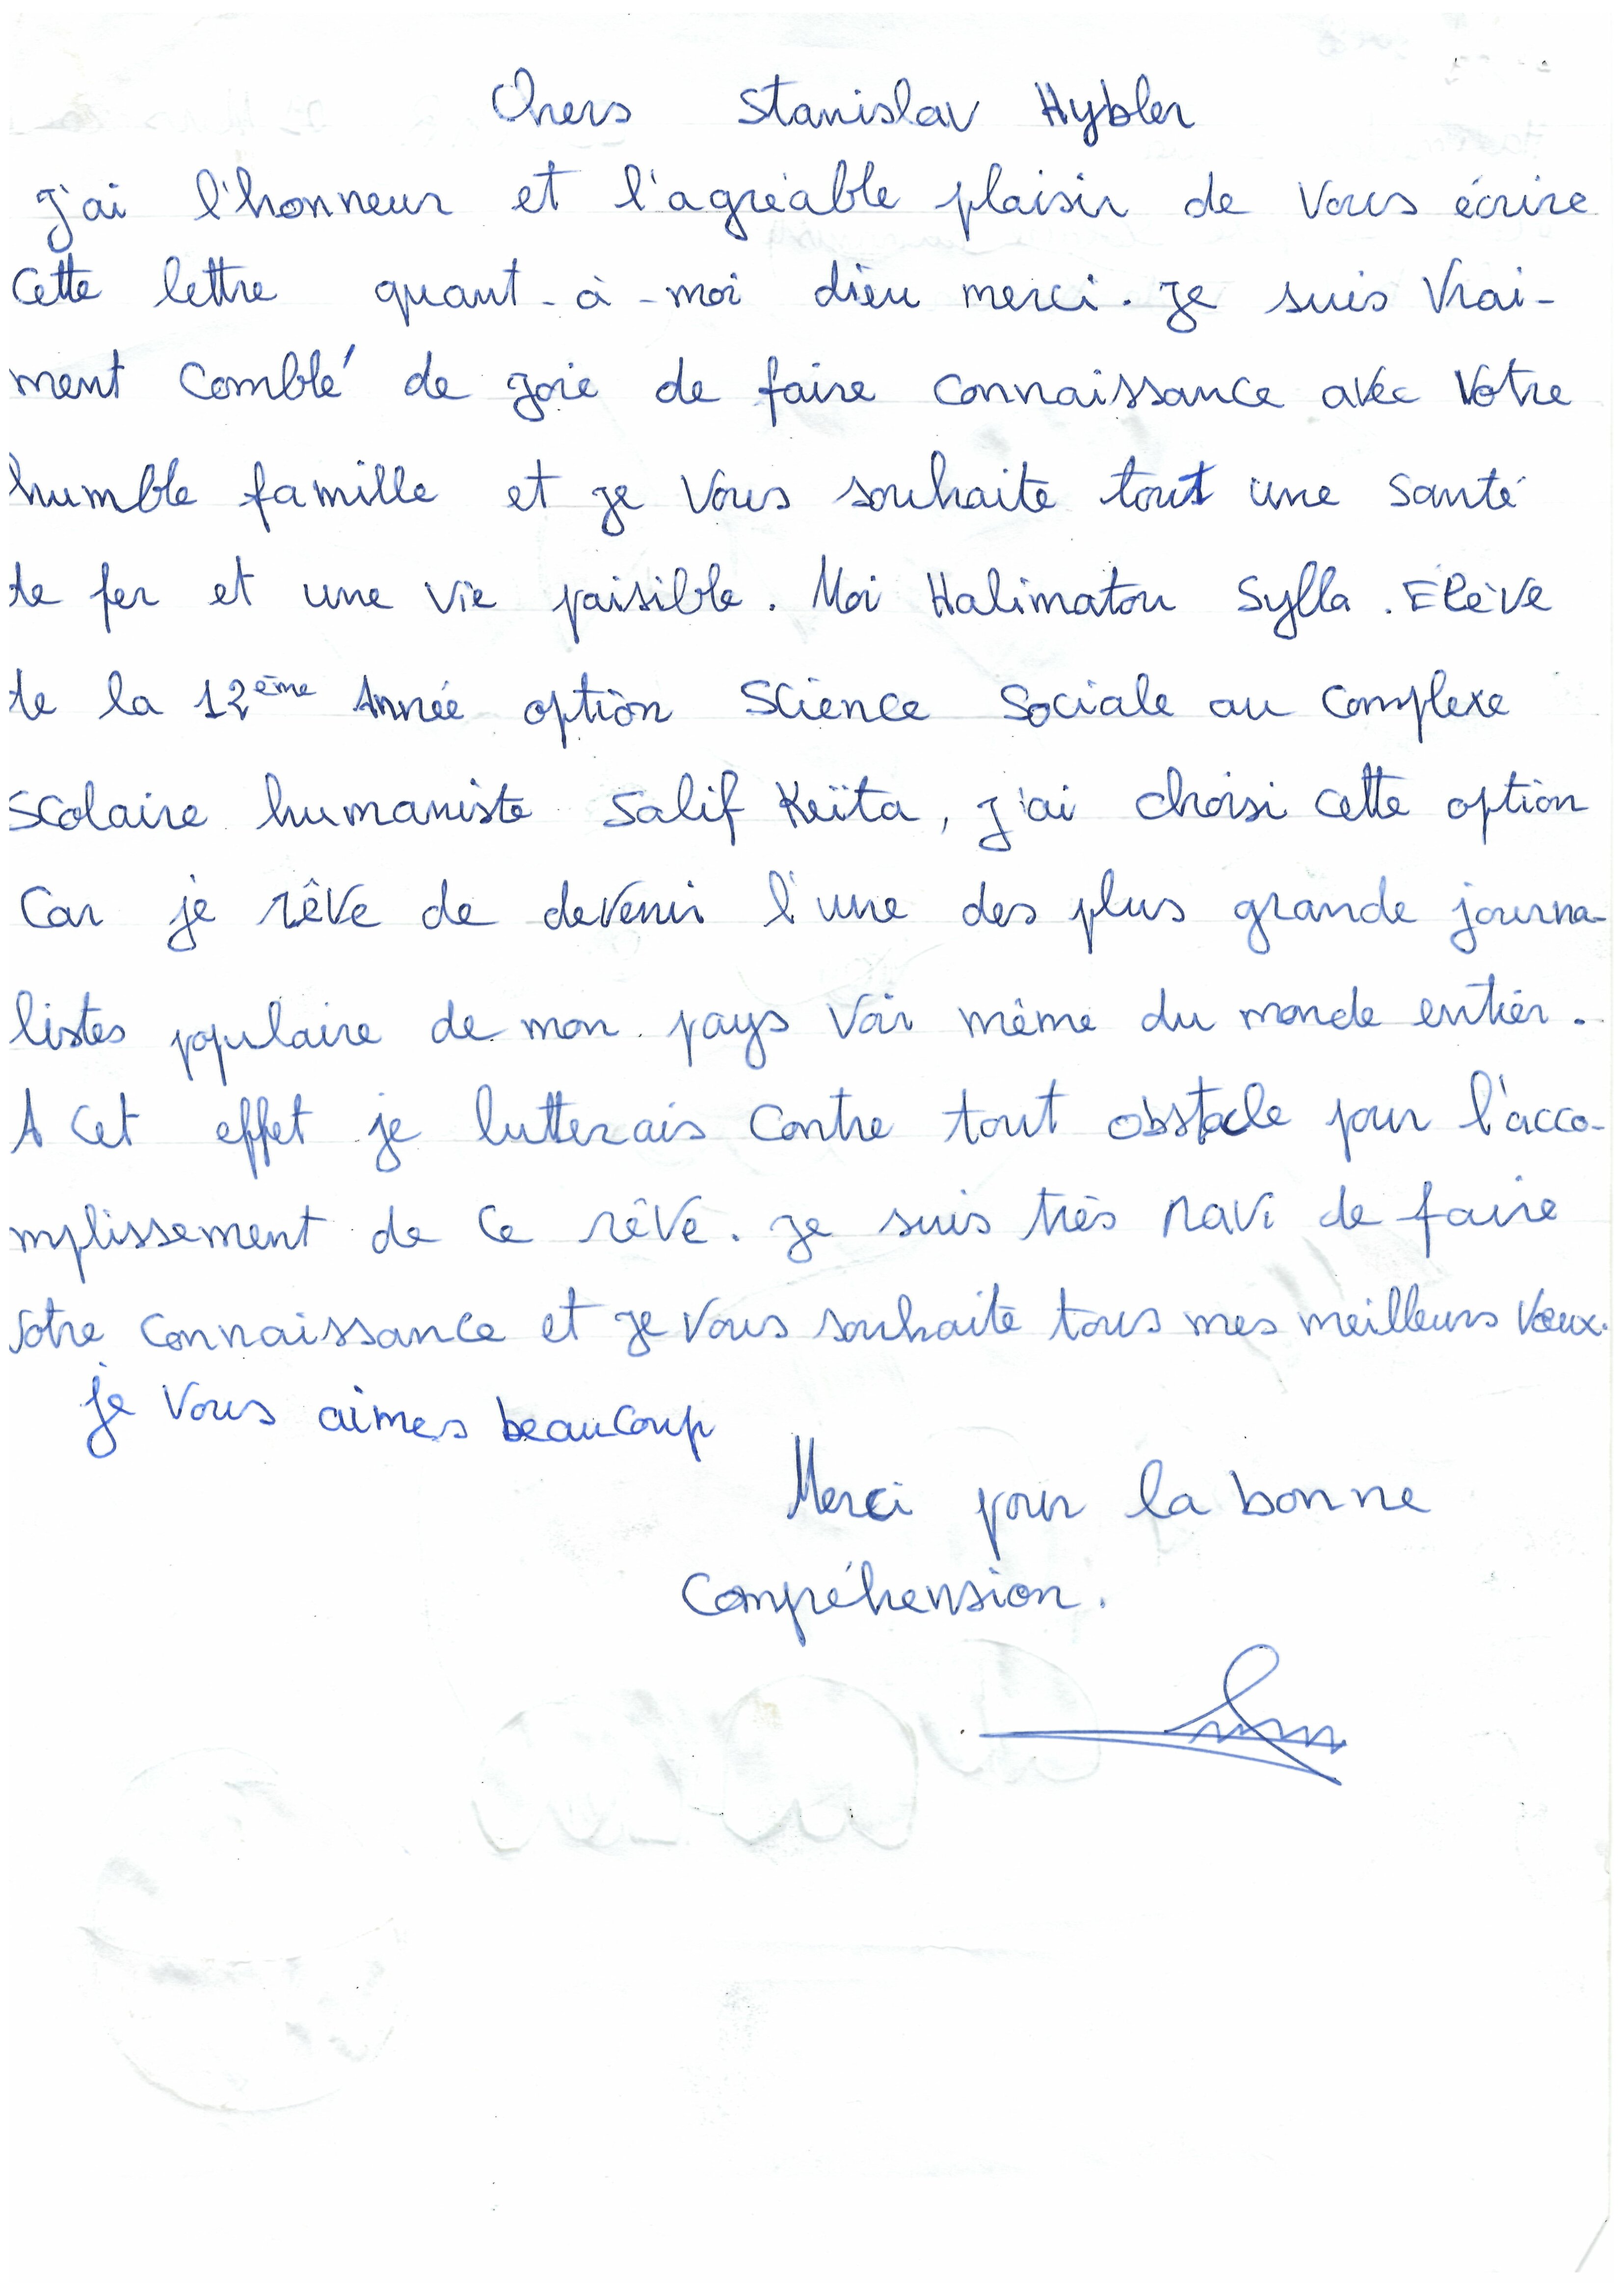 Chers Stanislav Hybler
J'ai l'honneur et l'agréable plaisir de Vous écrire
Cette lettre quant-à-moi dieu merci. Je suis Vrai-
ment Comblé de joie de faire connaissance avec Votre
humble famille et je Vous souhaite tout une Santé
de fer et une vie paisible. Moi Halimatou Sylla. Elève
de la 12ème Année option Science Sociale au Complexe
Scolaire humaniste Salif Keïta, j'ai choisi cette option
Car je rêve de devenir l'une des plus grande journa-
listes populaire de mon pays Voir même du monde entier.
A Cet effet je lutterais Contre tout obstacle pour l'acco-
mplissement de Ce rêve. Je suis très ravi de faire
Votre Connaissance et je Vous souhaite tous mes meilleurs Vœux.
je Vous aimes beaucoup
Merci pour la bonne
Compréhension.